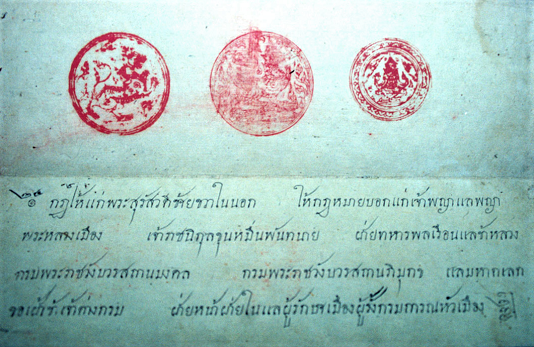 ๑ กฎให้แก่พระสุรัสวดีซ้ายขวาในนอก ให้กฎหมายบอกแก่เจ้าพญาแลพญา
พระหลวงเมือง เจ้าราชนิกุลขุนหมื่นพันทนาย ฝ่ายทหารพลเรือนแลข้าหลวง
กรมพระราชวังบวรสถานมงคล กรมพระราชวังบวรสถานภิมุกข แลมหาดเลก
ขอเฝ้าข้าเจ้าต่างกรม ฝ่ายหน้าฝ่ายในแลผู้รักษาเมืองผู้รั้งกรมการหัวเมือง